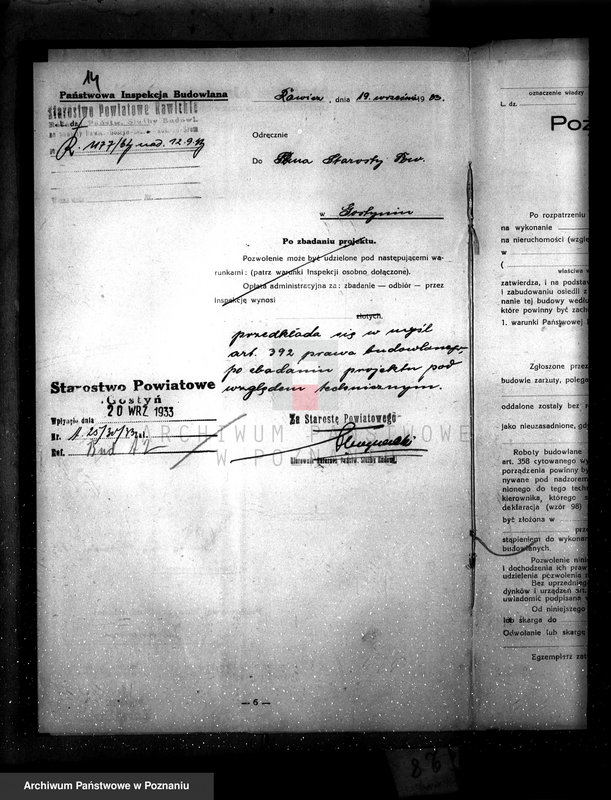 14
Państwowa Inspekcja Budowlana
Starostwo Powiatowe Rawickie
Ref. dz. Państw. Służby Budowl.
R. 1177/64 nad. 12.9.33
Rawicz, dnia 19 września 1933.
Odręcznie
Do Pana Starosty Pow.
w Gostyniu
Po zbadaniu projektu.
Pozwolenie może być udzielone pod następującemi wa-
runkami: (patrz warunki Inspekcji osobno dołączone).
Opłata administracyjna za: zbadanie — odbiór — przez
Inspekcję wynosi
złotych.
przedkłada się w myśl
art. 392 prawa budowlanego,
po zbadaniu projektu pod
względem technicznym.
Starostwo Powiatowe
Gostyń
20 WRZ 1933
Wpłynęło dnia
Nr.
Ref.
Za Starostę Powiatowego
Kierownik Referatu Państw. Służby Budowl.
ARCHIWUM PAŃSTWOWE
W POZNANIU
— 6 —
oznaczenie władzy
L. dz.
Poz
Po rozpatrzeniu
na wykonanie
na nieruchomości (wzglę
w
(
właściwa w
zatwierdza, i na podstaw
i zabudowaniu osiedli z
nanie tej budowy wedłu
które powinny być zach
1. warunki Państwowej I
Zgłoszone przez
budowie zarzuty, polega
oddalone zostały bez r
jako nieuzasadnione, gdy
Roboty budowlane
art. 358 cytowanego wy
porządzenia powinny by
nywane pod nadzorem
nionego do tego techn
kierownika, którego s
deklaracja (wzór 98)
być złożona w
prze
stąpieniem do wykonan
budowlanych.
Pozwolenie nini
i dochodzenia ich praw
udzielenia pozwolenia n
Bez uprzedniego
dynków i urządzeń art.
uwiadomić podpisana w
Od niniejszego
lub skarga do
Odwołanie lub skargę
Egzemplarz zat
Archiwum Państwowe w Poznaniu